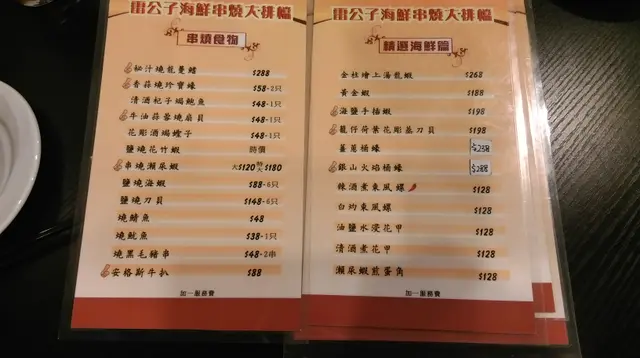 雷公子海鮮串燒大排檔
串燒食物
秘汁燒龍蔓鱔 $288
香蒜燒珍寶蟓 $58-2只
清酒杞子焗鮑魚 $48-1只
牛油蒜蓉燒扇貝 $48-1只
花彫酒焗蟶子 $48-1只
鹽燒花竹蝦 時價
串燒瀨尿蝦 大$120 特大$180
鹽燒海蝦 $88-6只
鹽燒刀貝 $148-6只
燒鯖魚 $48
燒魷魚 $38-1只
燒黑毛豬串 $48-2串
安格斯牛扒 $88
加一服務費
雷公子海鮮串燒大排檔
精選海鮮篇
金柱燴上湯龍蝦 $268
黃金蝦 $188
海鹽手抽蝦 $198
龍仔荷葉花彫蒸刀貝 $198
薑蔥桶蠔 $238
銀山火焰桶蠔 $288
辣酒煮東風螺 $128
白灼東風螺 $128
油鹽水浸花甲 $128
清酒煮花甲 $128
瀨尿蝦煎蛋角 $128
加一服務費